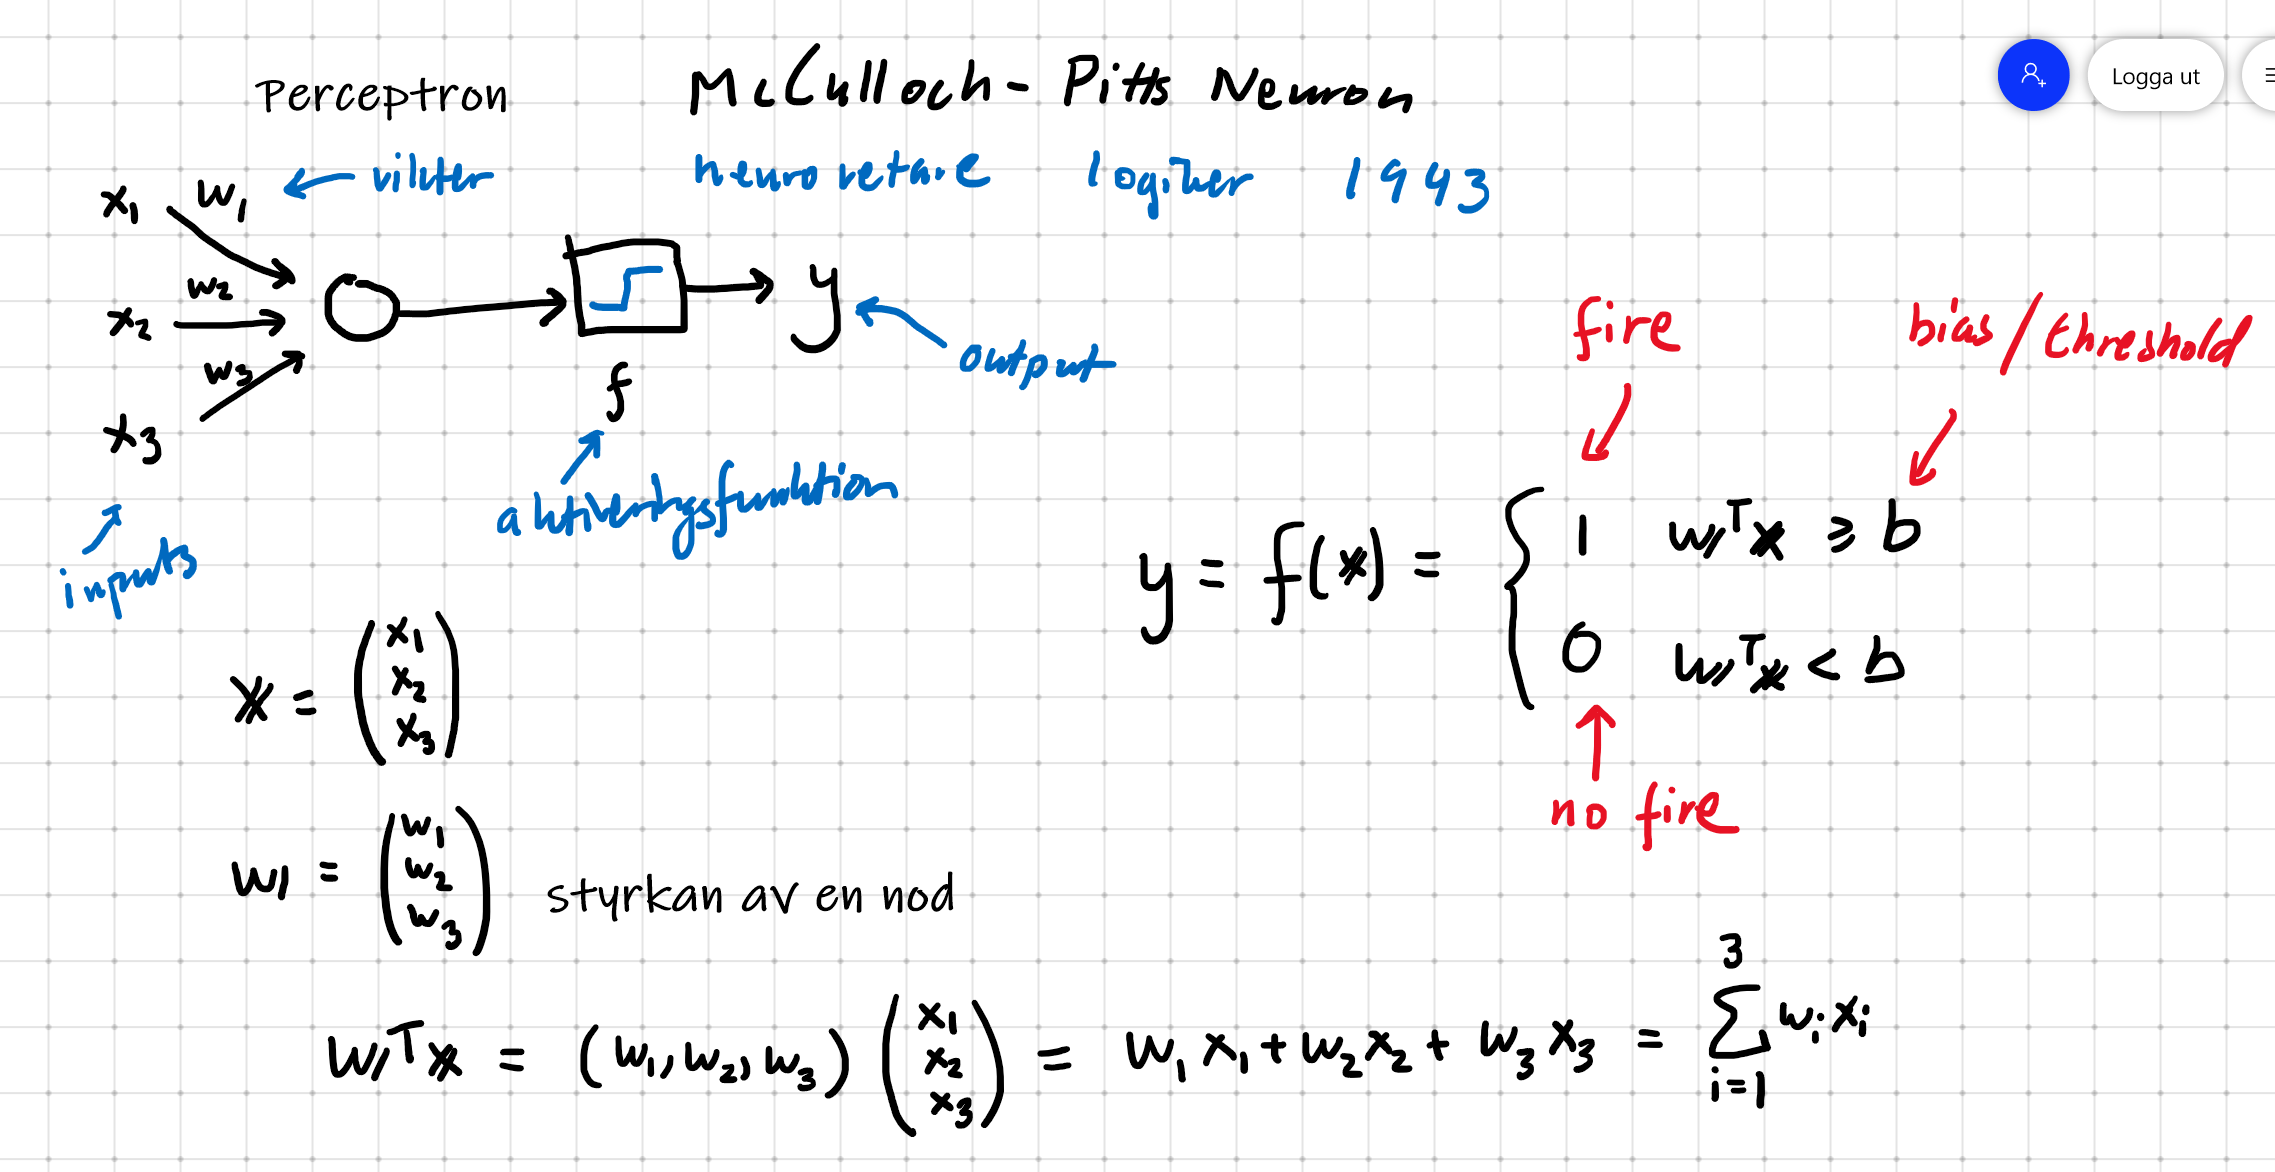 Perceptron
McCulloch - Pitts Neuron
Logga ut
vikter
neurovetare logiker 1943
x₁ w₁
x₂ w₂
x₃ w₃
y
output
f
aktiveringsfunktion
inputs
fire
bias/threshold
y = f(𝕩) = { 1 𝕨ᵀ𝕩 ≥ b
0 𝕨ᵀ𝕩 < b
no fire
𝕩 = (x₁ x₂ x₃)
𝕨 = (w₁ w₂ w₃)
styrkan av en nod
𝕨ᵀ𝕩 = (w₁, w₂, w₃) (x₁ x₂ x₃) = w₁x₁ + w₂x₂ + w₃x₃ = ∑ᵢ₌₁³ wᵢxᵢ